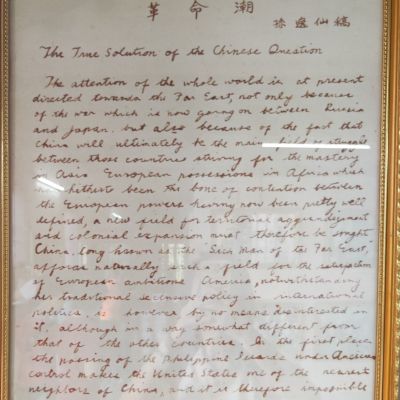 革命潮
孫逸仙稿
The True Solution of the Chinese Question
The attention of the whole world is at present
directed towards the Far East, not only because
of the war which is now going on between Russia
and Japan, but also because of the fact that
China will ultimately be the main field of struggle
between those countries striving for the mastery
in Asia European possessions in Africa which
has hitherto been the bone of contention between
the European powers having now been pretty well
defined, a new field for territorial aggrandizement
and colonial expansion must therefore be sought
China, long known as the "Sick Man of the Far East,"
affords naturally such a field for the satisfaction
of European ambitions America, notwithstanding
her traditional seclusive policy in international
politics, is however by no means disinterested in
it, although in a way somewhat different from
that of the other countries. In the first place
the passing of the Philippine Islands under American
control makes the United States one of the nearest
neighbors of China, and it is therefore impossible